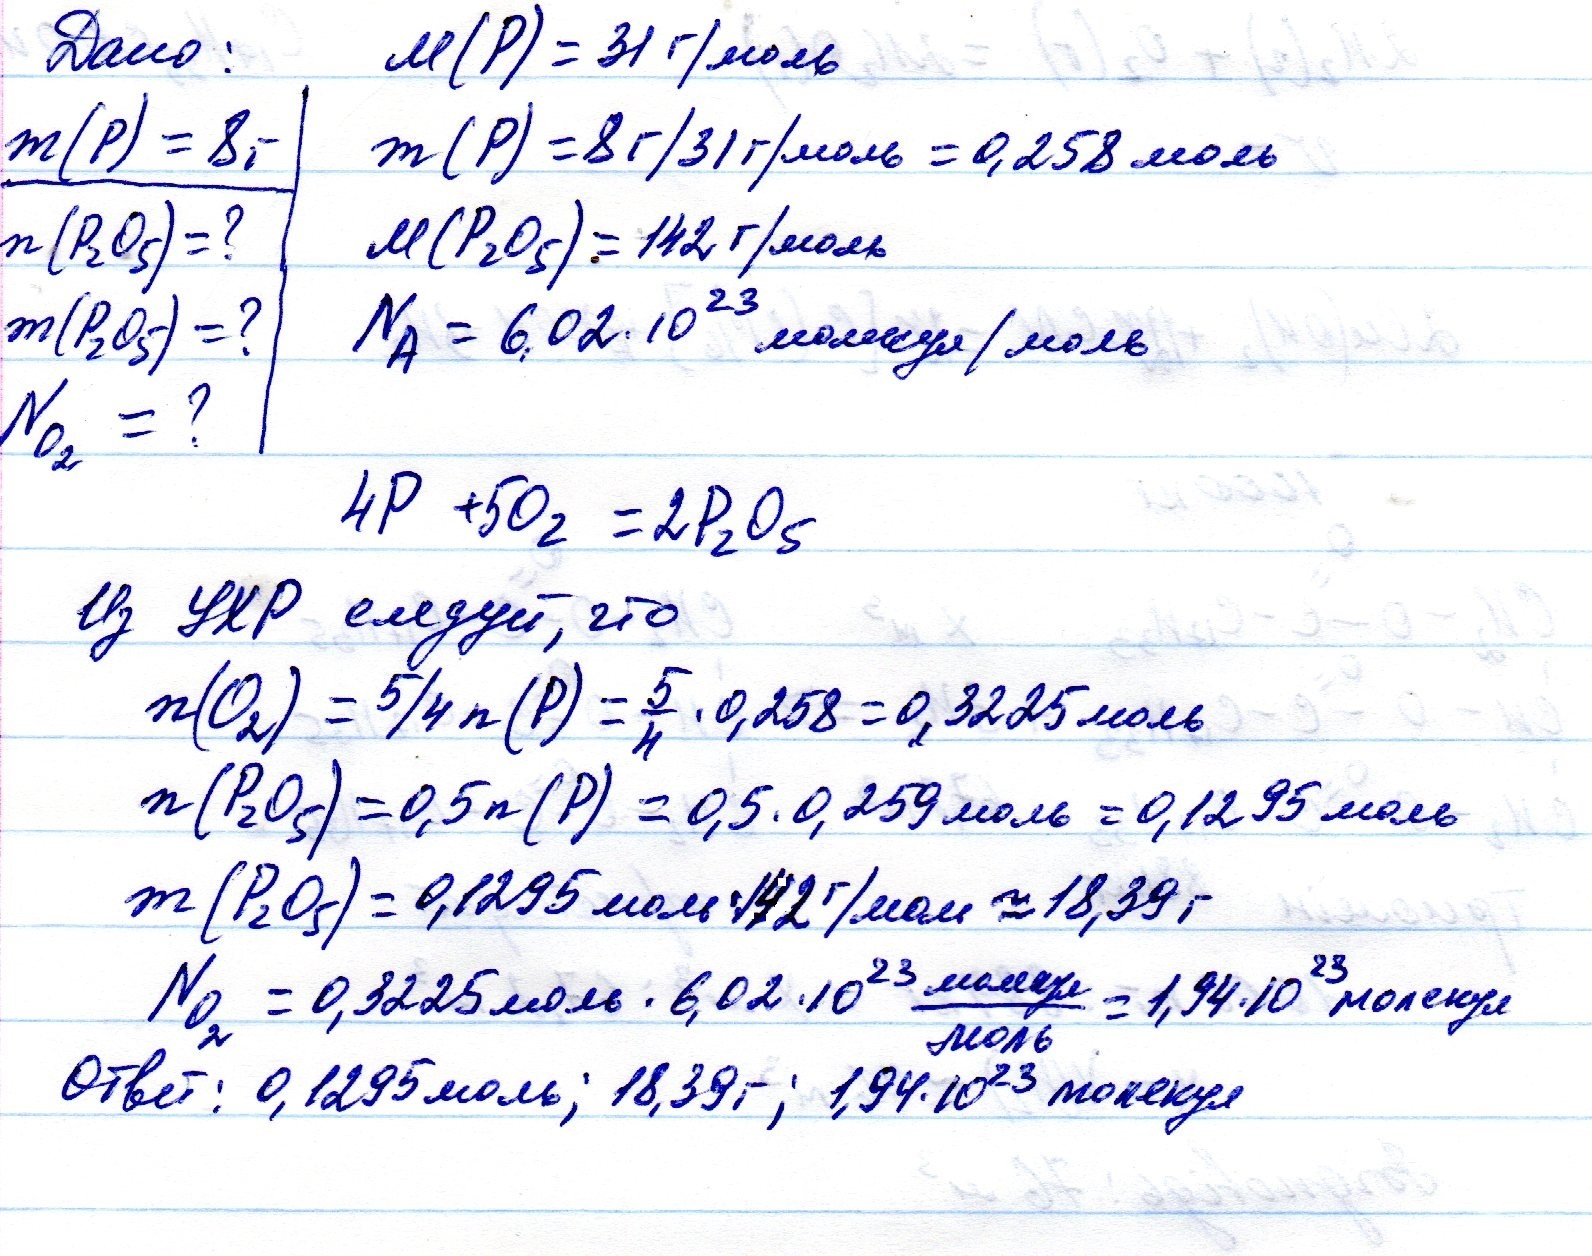 Дано:
m(P) = 8г
n(P₂O₅) = ?
m(P₂O₅) = ?
N O₂ = ?
M(P) = 31 г/моль
m(P) = 8г/31г/моль = 0,258 моль
M(P₂O₅) = 142 г/моль
N_A = 6,02·10²³ молекул/моль
4P + 5O₂ = 2P₂O₅
Из УХР следует, что
n(O₂) = 5/4 n(P) = 5/4 · 0,258 = 0,3225 моль
n(P₂O₅) = 0,5n(P) = 0,5·0,259 моль = 0,1295 моль
m(P₂O₅) = 0,1295 моль·142 г/моль ≈ 18,39 г
N O₂ = 0,3225 моль · 6,02·10²³ молекул/моль = 1,94·10²³ молекул
Ответ: 0,1295 моль; 18,39г; 1,94·10²³ молекул